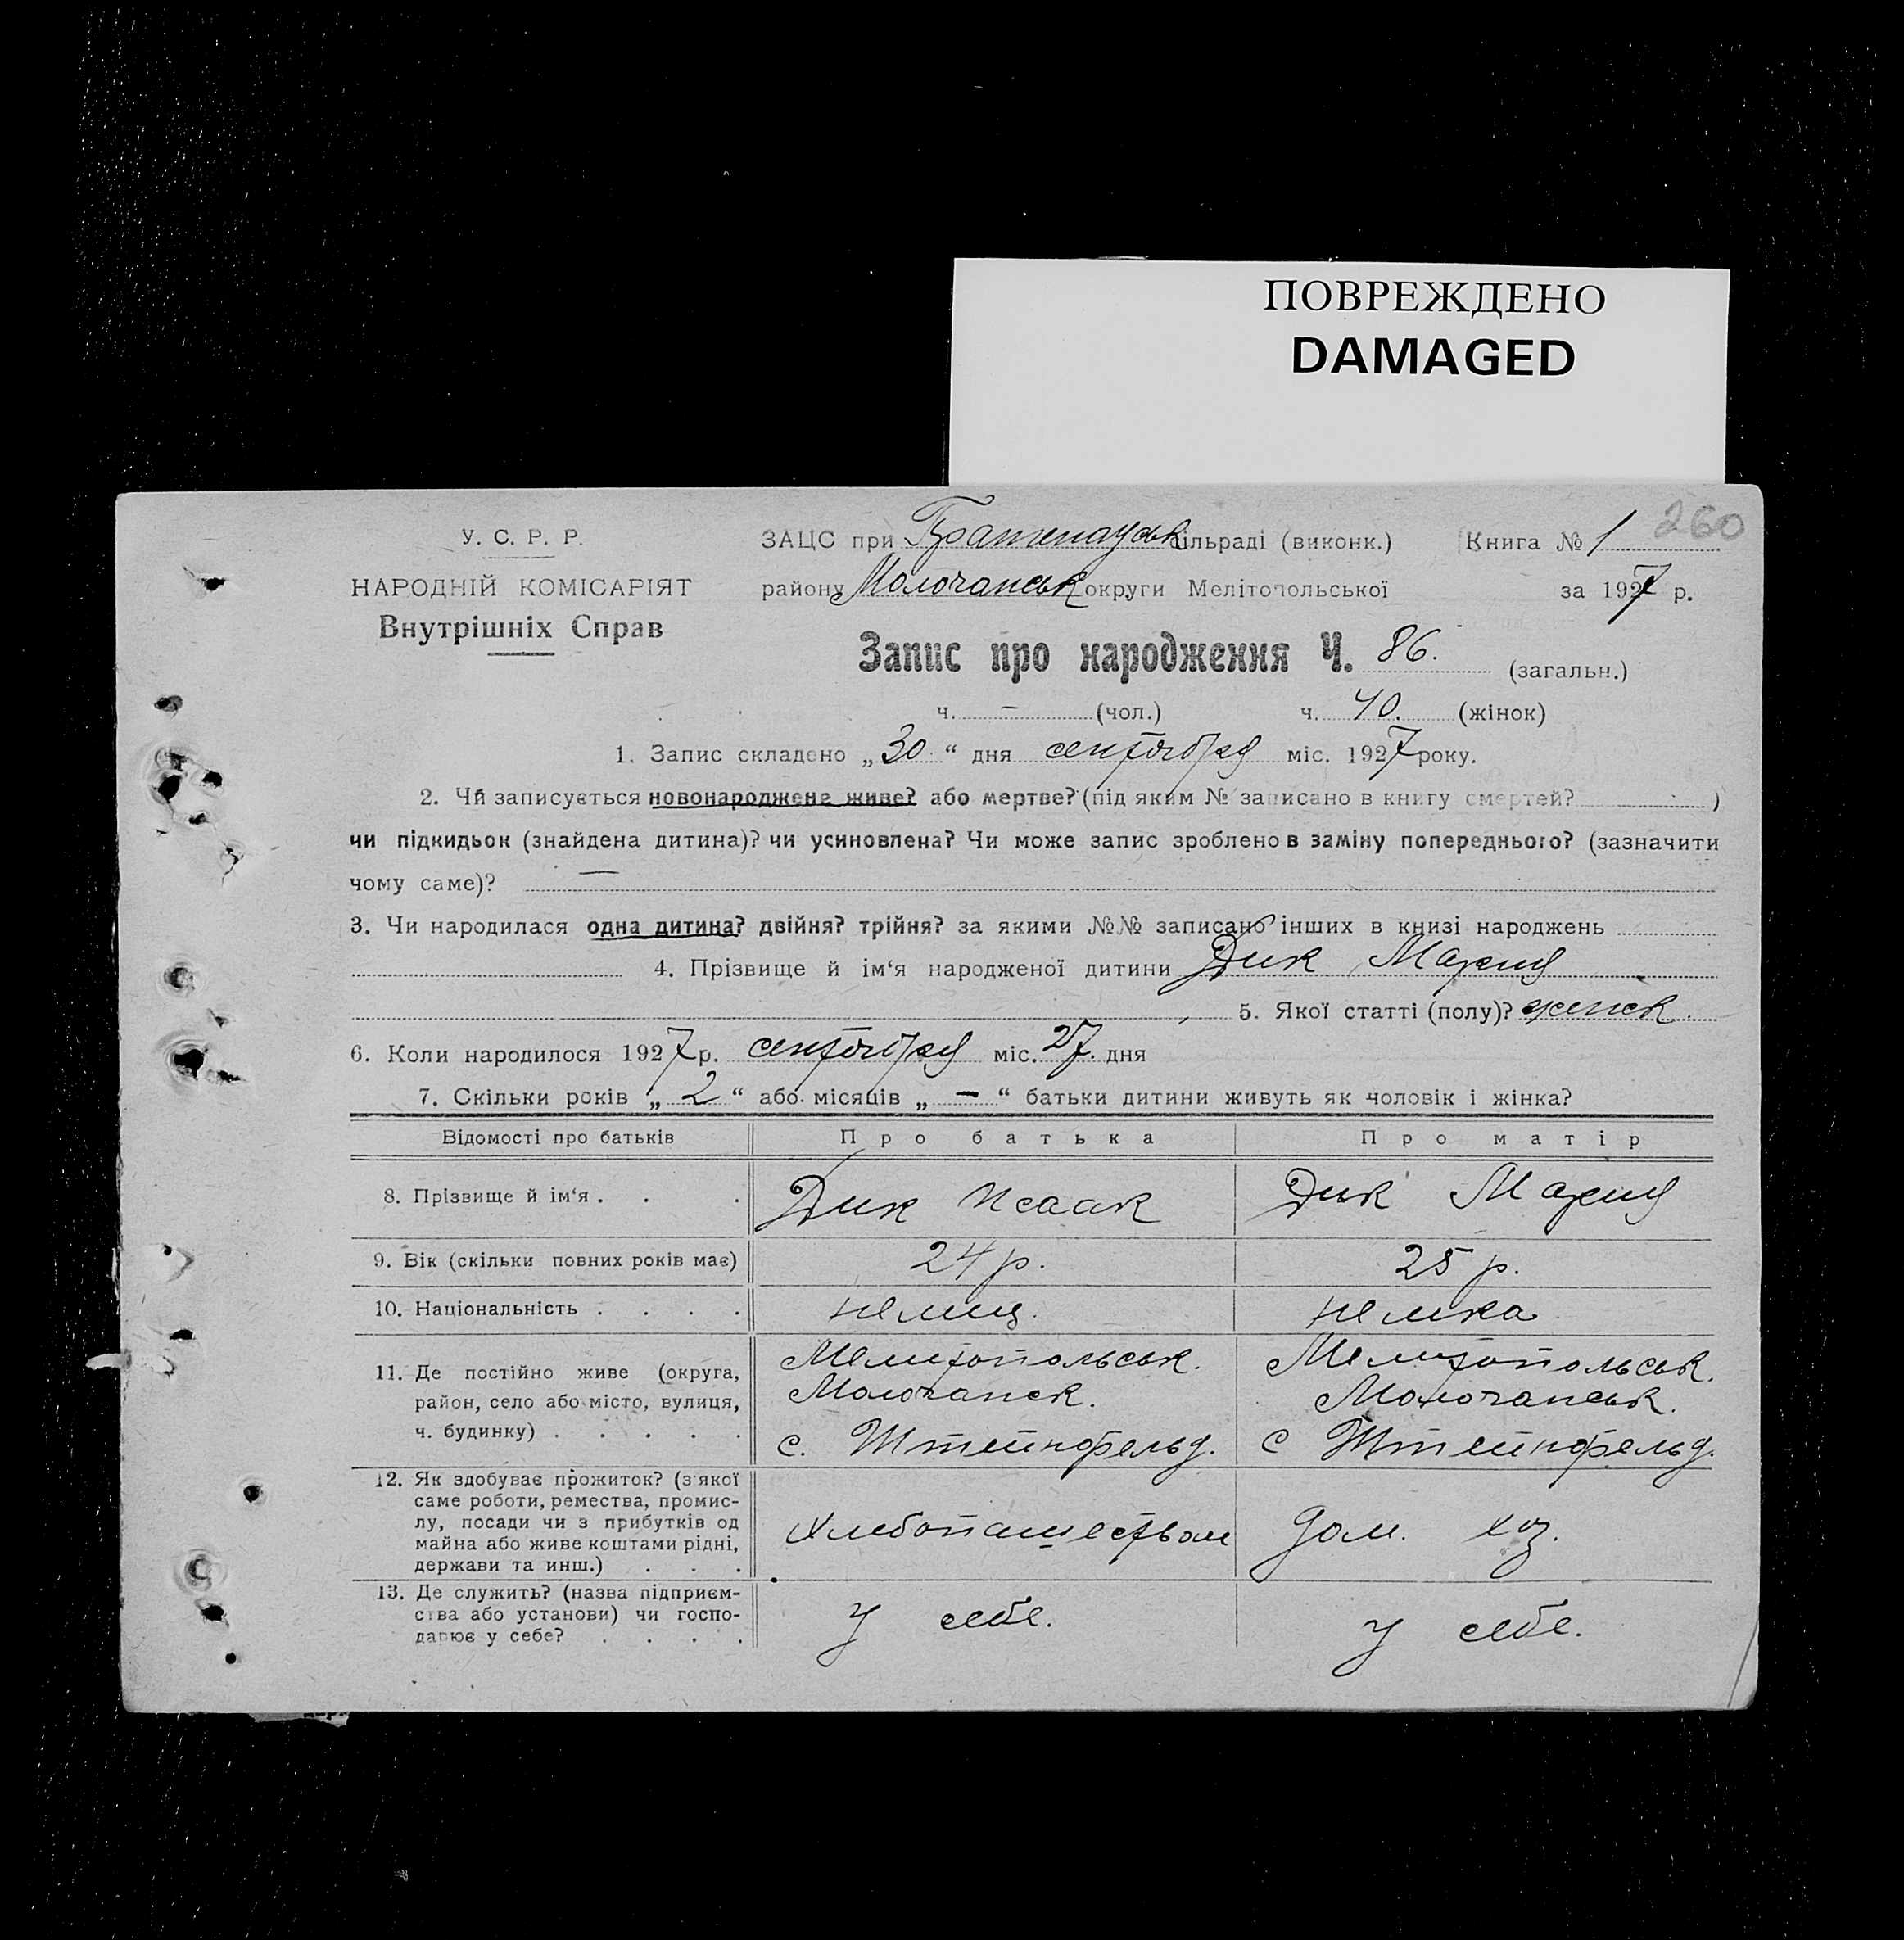 ПОВРЕЖДЕНО
DAMAGED
260
У. С. Р. Р.
НАРОДНІЙ КОМІСАРІЯТ
Внутрішніх Справ
ЗАЦС при сільраді (виконк.) Книга № 1
району Молочанськ округи Мелітопольської за 1927 р.
Запис про народження Ч. 86. (загальн.)
ч. — (чол.) ч. 40. (жінок)
1. Запис складено „30“ дня сентября міс. 1927 року.
2. Чи записується новонароджене живе? або мертве? (під яким № записано в книгу смертей? )
чи підкидьок (знайдена дитина)? чи усиновлена? Чи може запис зроблено в заміну попереднього? (зазначити
чому саме)? —
3. Чи народилася одна дитина? двійня? трійня? за якими №№ записано інших в книзі народжень
4. Прізвище й ім‘я народженої дитини Дик Мария
5. Якої статті (полу)? женск.
6. Коли народилося 1927 р. сентября міс. 27. дня
7. Скільки років „2“ або місяців „—“ батьки дитини живуть як чоловік і жінка?
Відомості про батьків Про батька Про матір
8. Прізвище й ім‘я . . . Дик Исаак Дик Мария
9. Вік (скільки повних років має) 24 р. 25 р.
10. Національність . . . . немец. немка
11. Де постійно живе (округа,
район, село або місто, вулиця,
ч. будинку) . . . . .
Мелитопольськ.
Молочанск.
с. Штейнфельд.
Мелитопольськ.
Молочанськ.
с Штейнфельд.
12. Як здобуває прожиток? (з якої
саме роботи, ремества, промис-
лу, посади чи з прибутків од
майна або живе коштами рідні,
держави та инш.) . . .
Хлебопашеством
дом. хоз.
13. Де служить? (назва підприєм-
ства або установи) чи госпо-
дарює у себе? . . . .
У себе.
У себе.